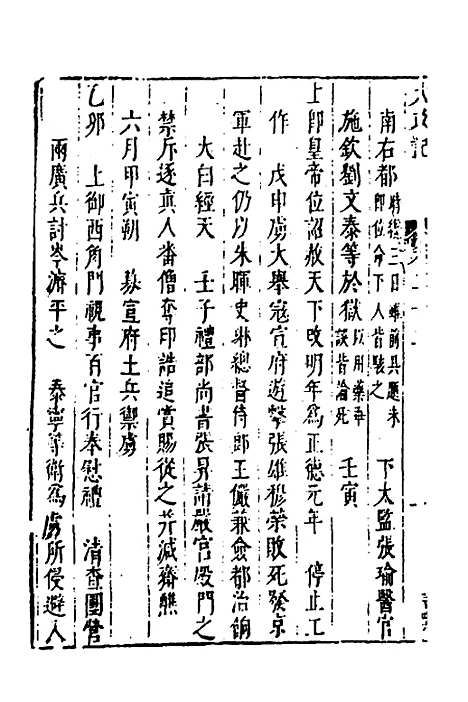 大政記
南右都時從二日端前具題未即位命下人皆駭之　下太監張瑜醫官
施欽劉文泰等於獄以用藥誤皆論死　壬寅
上即皇帝位詔赦天下改明年為正德元年　停止工
作　戊申虜大舉寇宣府遊擊張雄穆榮敗死發京
軍赴之仍以朱暉史琳總督侍郎王儼兼僉都治餉
大白經天　壬子禮部尚書張昇請嚴官殿門之
禁斥逐真人番僧奪印誥追賞賜從之并減齋醮
六月甲寅朔　募宣府土兵禦虜
乙卯　上御西角門視事百官行奉慰禮　清查團營
兩廣兵討岑濬平之　泰寧等衛為虜所侵避入